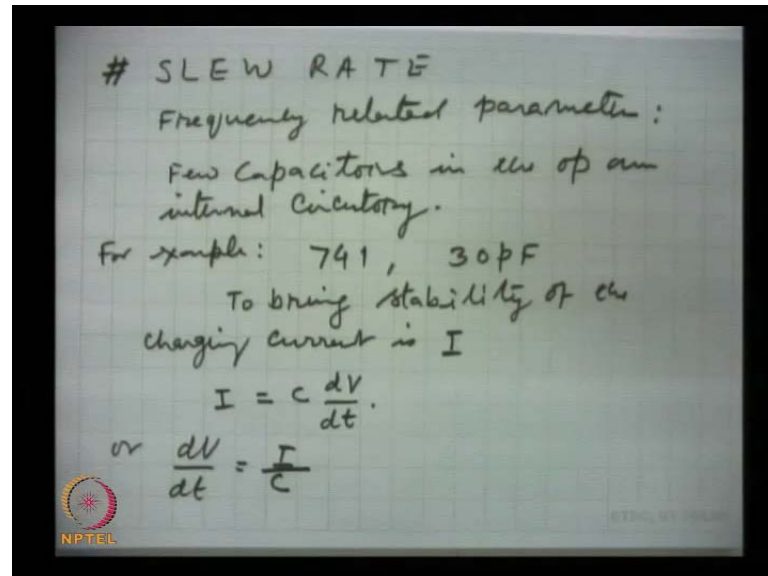 # SLEW RATE
Frequency related parameter:
Few Capacitors in the op am
internal Circutory.
For example: 741, 30pF
To bring stability of the
charging current is I
I = C dV/dt.
or dV/dt = I/C
NPTEL